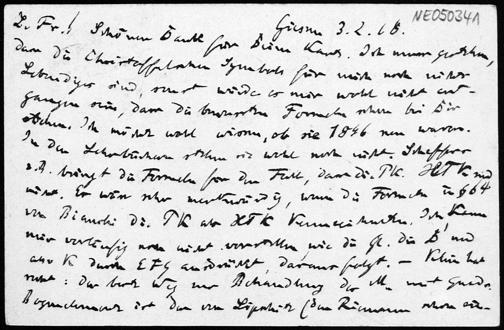 NE050341
Giessen 3.2.18.
L. Fr.! Schönen Dank für Deine Karte. Ich muss gestehen,
dass die Christoffelschen Symbole für mich noch nichts
Lebendiges sind, sonst würde es mir wohl nicht ent-
gangen sein, dass die bewussten Formeln schon bei Dir
stehen. Ich möchte wohl wissen, ob sie 1896 neu waren.
In den Lehrbüchern stehen sie wohl noch nicht. Scheffers
z.B. bringt die Formeln für den Fall, dass die PK. HTK sind
nicht. Es wäre sehr merkwürdig, wenn die Formeln in § 64
von Bianchi die PK als HTK kennzeichneten. Ich kann
mir vorläufig noch nicht vorstellen, wie die Gl. die D, und
aus K durch EFG ausdrückt, daraus folgt, – Klein hat
recht: das beste Weg zur Behandlung der M. mit quadr.
Bogenelement ist das von Lipschitz (den Riemann schon